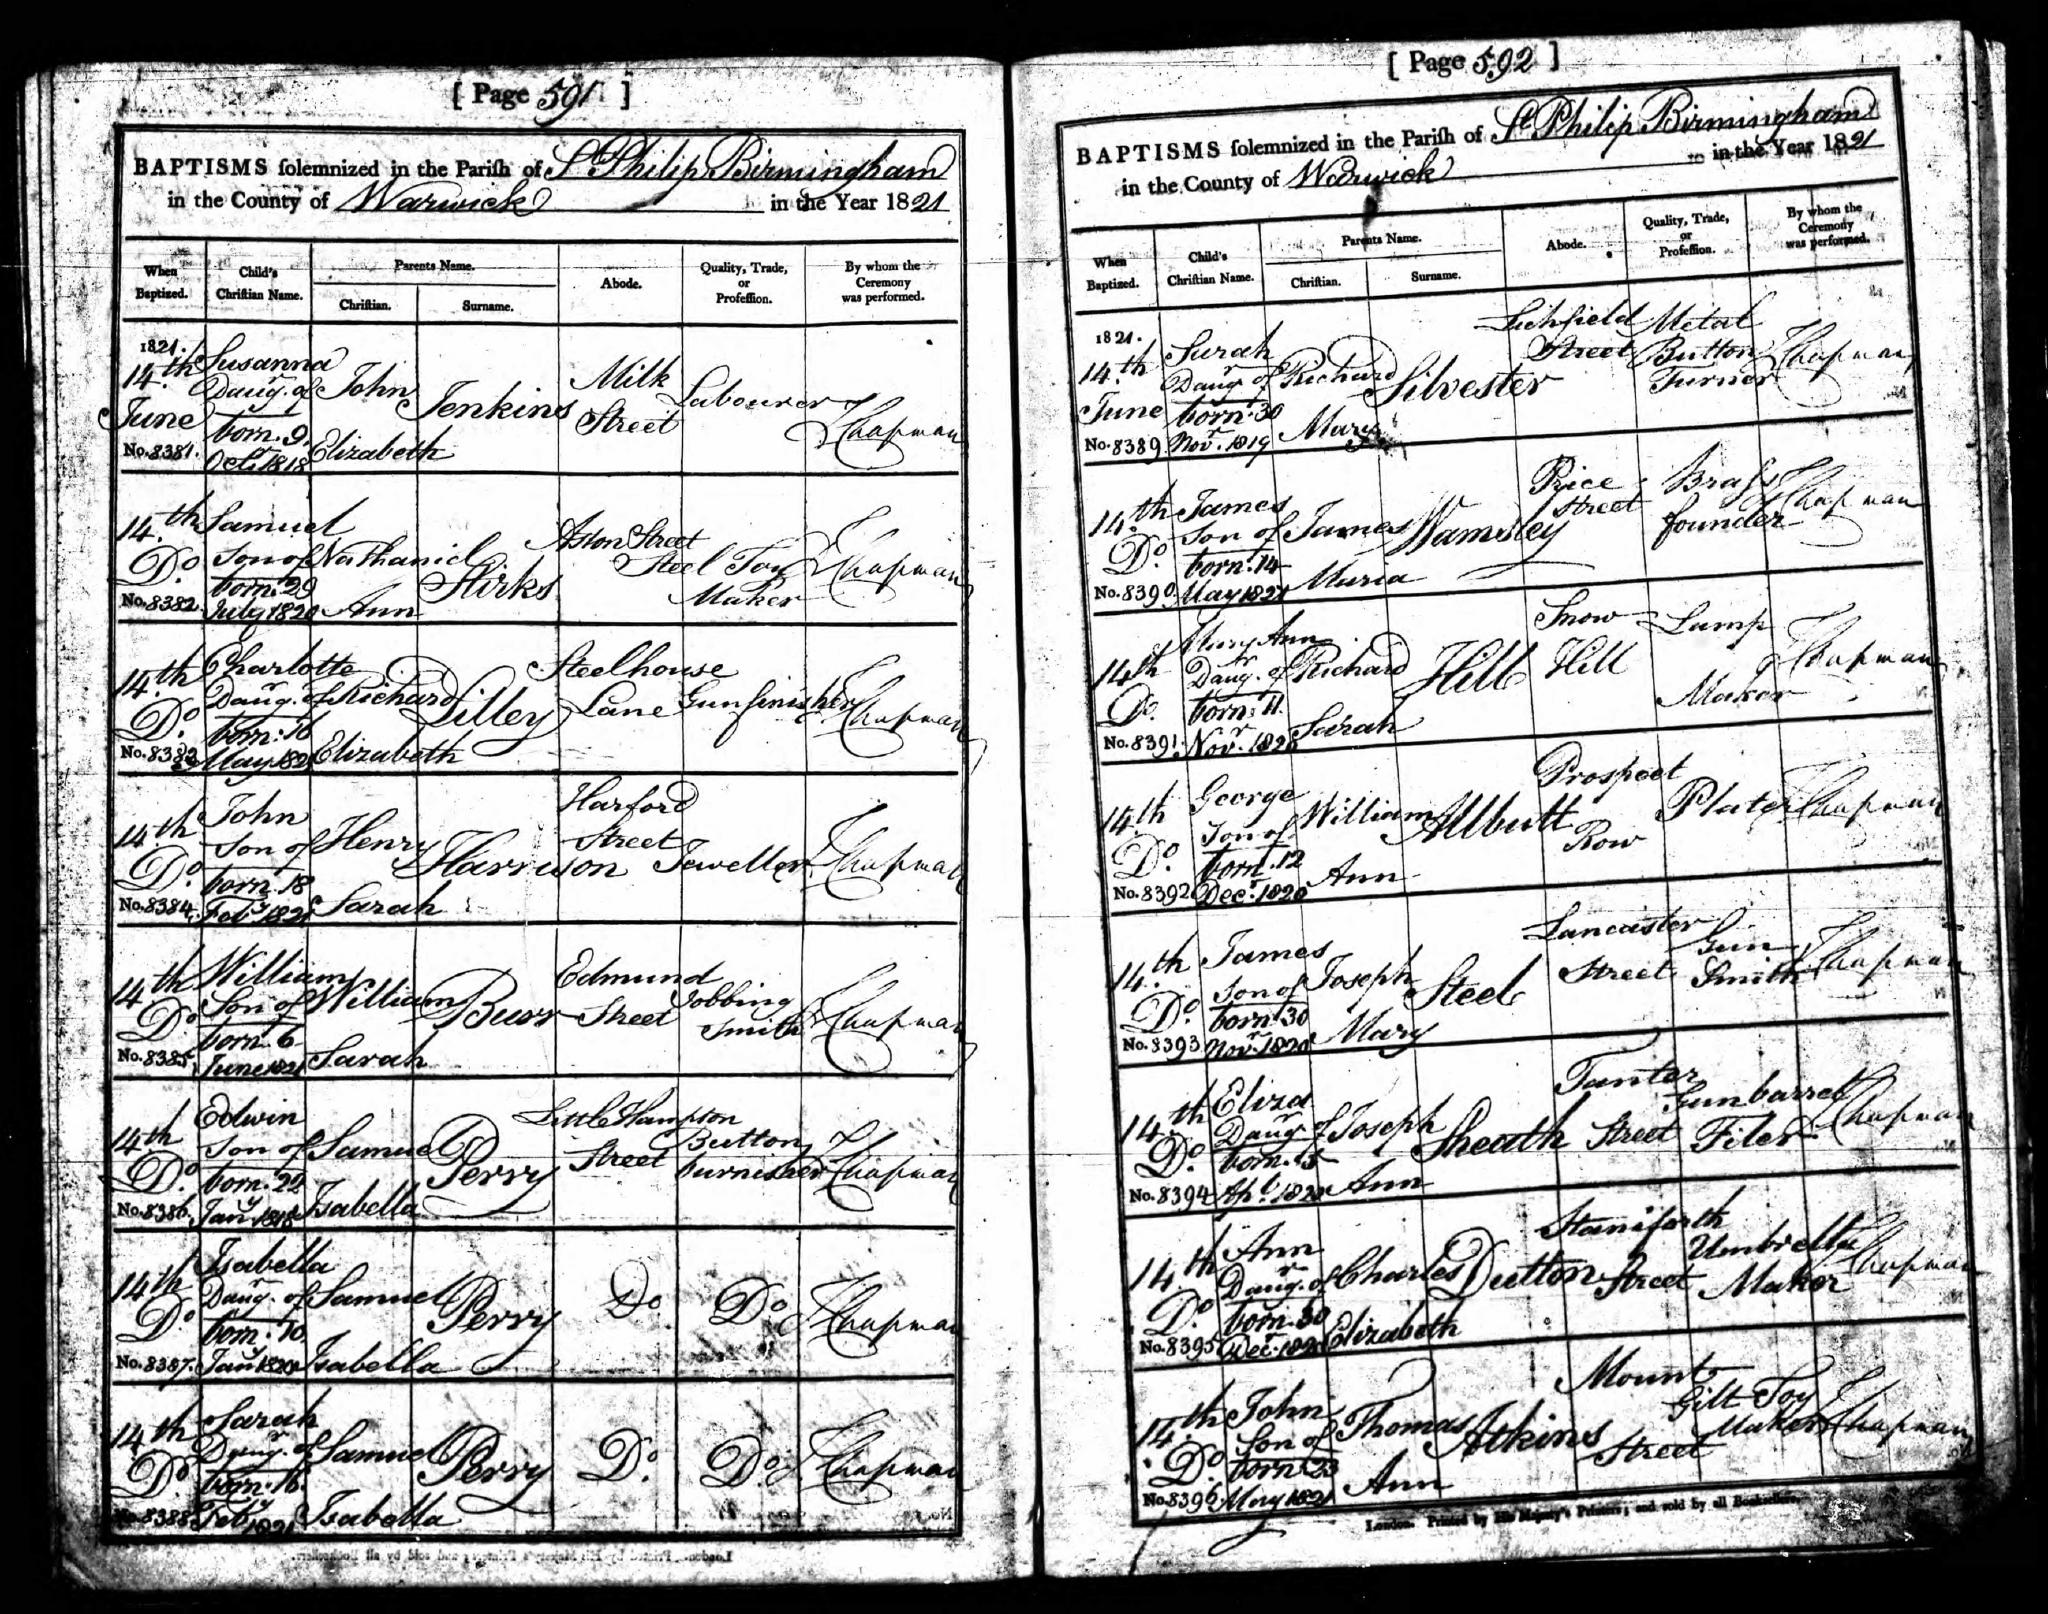 [ Page 591 ]
BAPTISMS solemnized in the Parish of St Philip Birmingham
in the County of Warwick in the Year 1821
When Baptized.
Child's Christian Name.
Parents Name.
Christian.
Surname.
Abode.
Quality, Trade, or Profession.
By whom the Ceremony was performed.
1821.
14th June
No. 8381.
Susanna
Daugr. of
born. 9.
Octr. 1818
John
Elizabeth
Jenkins
Milk
Street
Labourer
Chapman
14th
Do.
No. 8382.
Samuel
Son of
born. 29
July 1820
Nathaniel
Ann
Hirks
Aston Street
Steel Toy
Maker
Chapman
14th
Do.
No. 8383
Charlotte
Daugr. of
born: 16
May 1821
Richard
Elizabeth
Lilley
Steelhouse
Lane
Gunfinisher
Chapman
14th
Do.
No. 8384.
John
Son of
born. 18
Feby 1821
Henry
Sarah
Harrison
Harford
Street
Jeweller
Chapman
14th
Do
No. 8385
William
Son of
born. 6
June 1821
William
Sarah
Burr
Edmund
Street
Jobbing
Smith
Chapman
14th
Do.
No. 8386.
Edwin
Son of
born. 22
Jany 1818
Samuel
Isabella
Perry
Little Hampton
Street
Button
burnisher
Chapman
14th
Do.
No. 8387.
Isabella
Daugr. of
born: 10
Jany 1820
Samuel
Isabella
Perry
Do.
Do.
Chapman
14th
Do.
No. 8388
Sarah
Daugr. of
born: 16.
Feby 1821
Samuel
Isabella
Perry
Do.
Do.
Chapman
[ Page 592 ]
BAPTISMS solemnized in the Parish of St Philip Birmingham
in the County of Warwick in the Year 1821
When Baptized.
Child's Christian Name.
Parents Name.
Christian.
Surname.
Abode.
Quality, Trade, or Profession.
By whom the Ceremony was performed.
1821.
14th
June
No. 8389.
Sarah
Daugr. of
born. 30
Novr. 1819
Richard
Mary
Silvester
Lichfield
Street
Metal
Button
Turner
Chapman
14th
Do.
No. 8390
James
Son of
born. 14
May 1821
James
Maria
Wamsley
Price
Street
Brass
founder
Chapman
14th
Do.
No. 8391.
Mary Ann
Daugr. of
born: 11.
Novr. 1820
Richard
Sarah
Hill
Snow
Hill
Lamp
Maker
Chapman
14th
Do.
No. 8392
George
Son of
born. 12
Decr. 1820
William
Ann
Allbutt
Prospect
Row
Plater
Chapman
14th
Do.
No. 8393
James
Son of
born. 30
Novr. 1820
Joseph
Mary
Steel
Lancaster
Street
Gun
Smith
Chapman
14th
Do.
No. 8394
Eliza
Daugr. of
born.
Apl.
Joseph
Ann
Sheath
Tanter
Street
Gunbarrel
Filer
Chapman
14th
Do.
No. 8395
Ann
Daugr. of
born. 30
Decr. 1820
Charles
Elizabeth
Dutton
Staniforth
Street
Umbrella
Maker
Chapman
14th
Do.
No. 8396
John
Son of
born. 23
May 1821
Thomas
Ann
Atkins
Mount
Street
Gilt Toy
Maker
Chapman
London. Printed by His Majesty's Printers; and sold by all Booksellers.